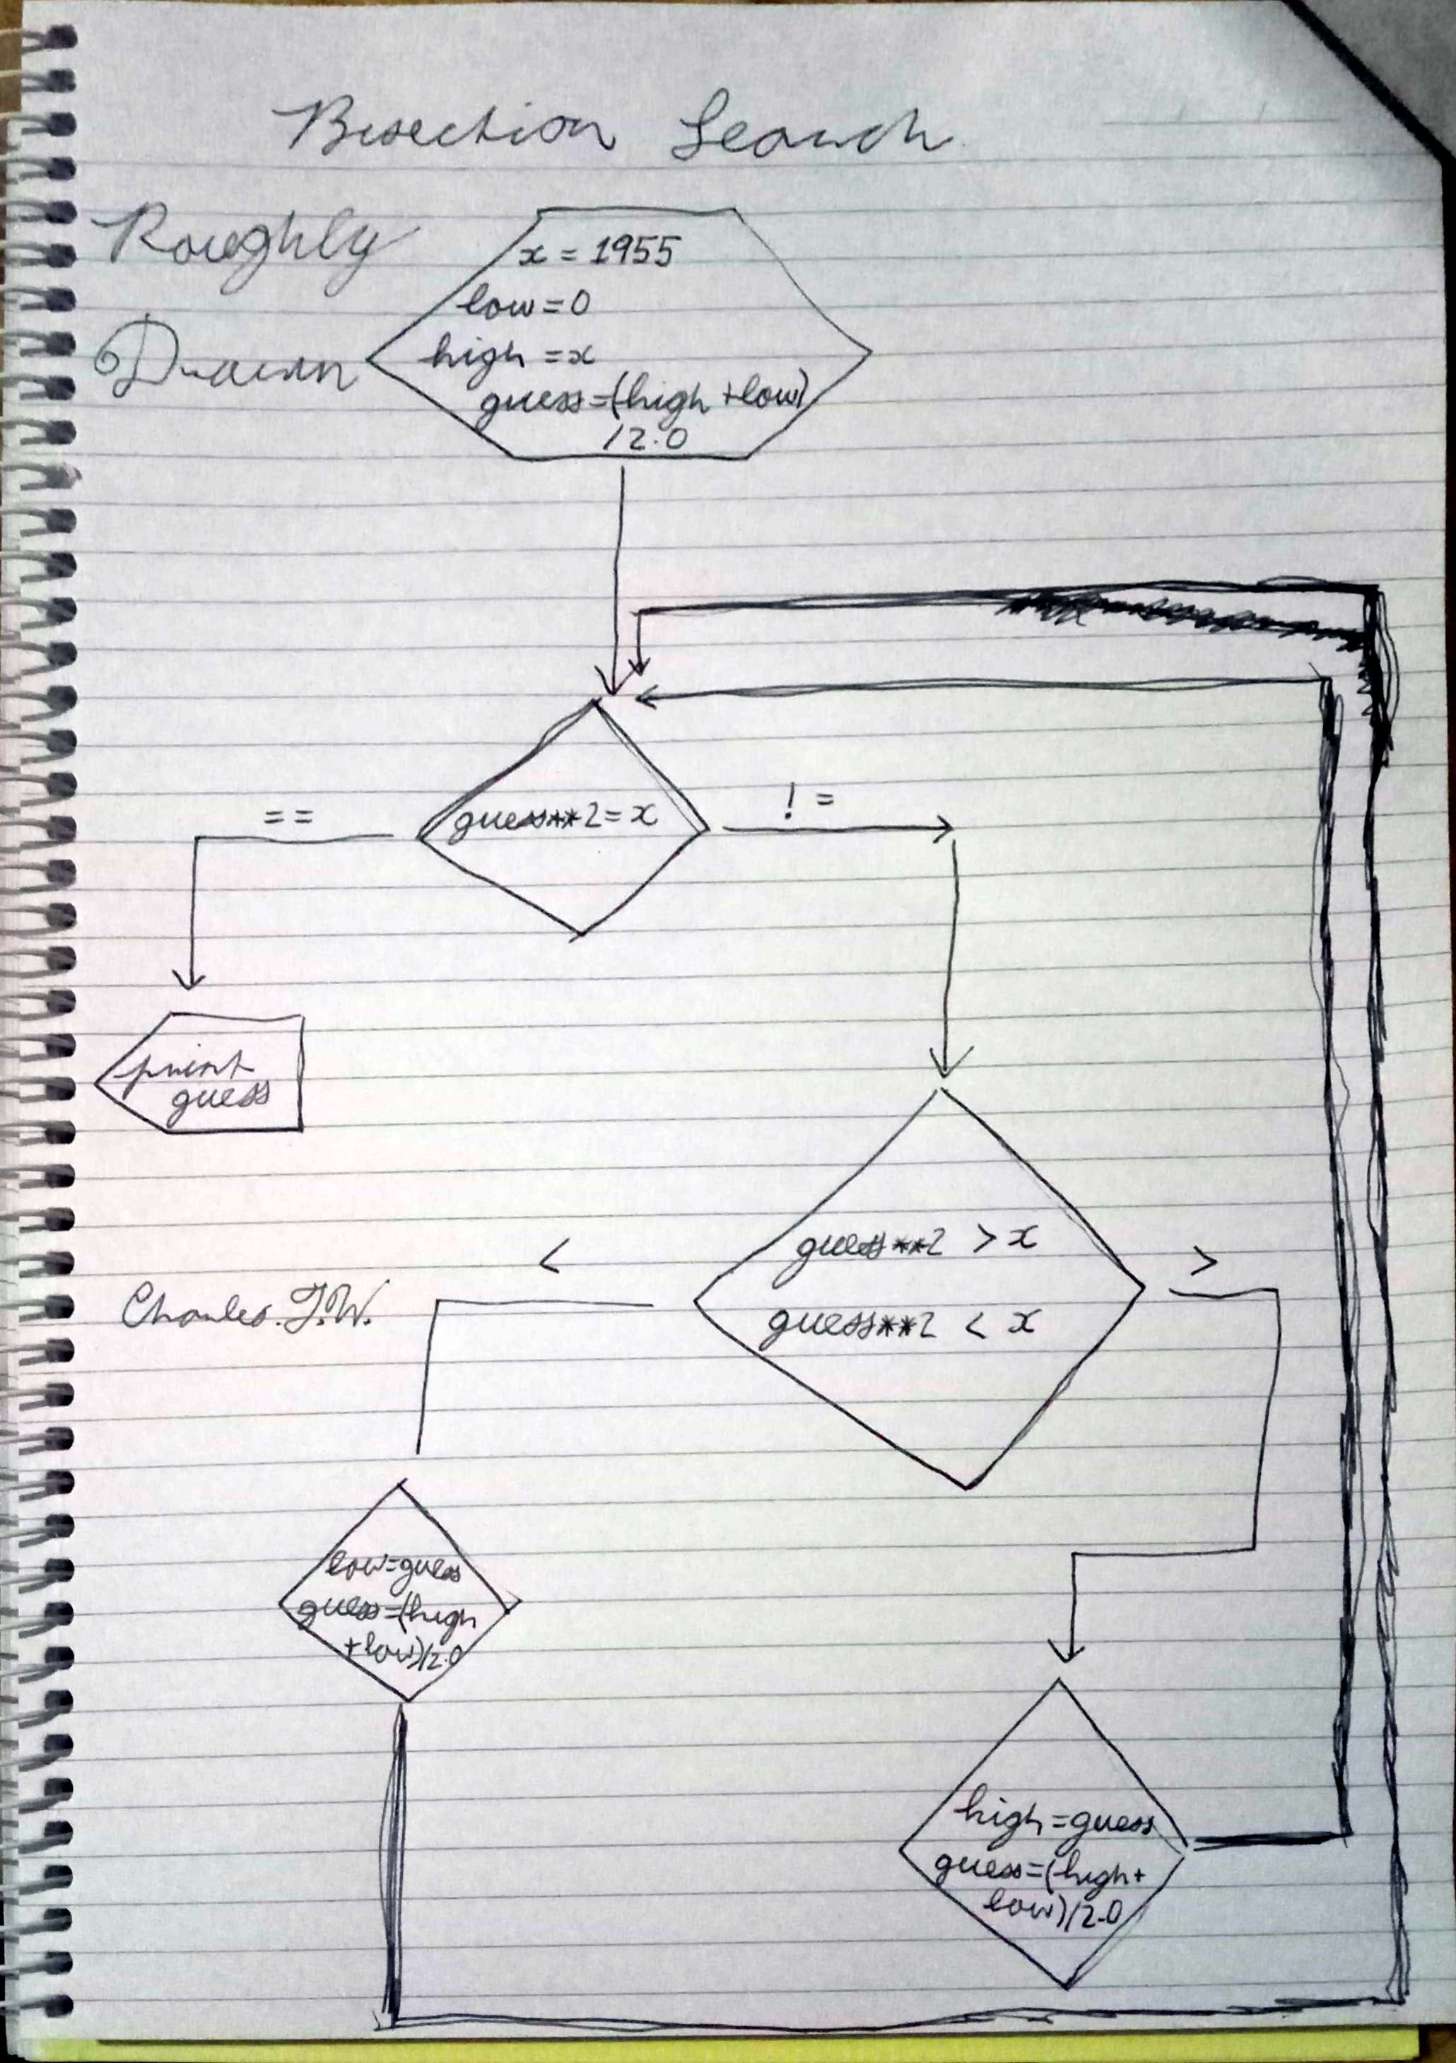 Bisection Search
Roughly
Drawn
x = 1955
low=0
high =x
guess=(high +low)
/2.0
==
guess**2=x
!=
print
guess
<
guess**2 >x
>
guess**2 < x
Charles.J.W.
low=guess
guess=(high
+low)/2.0
high=guess
guess=(high+
low)/2.0